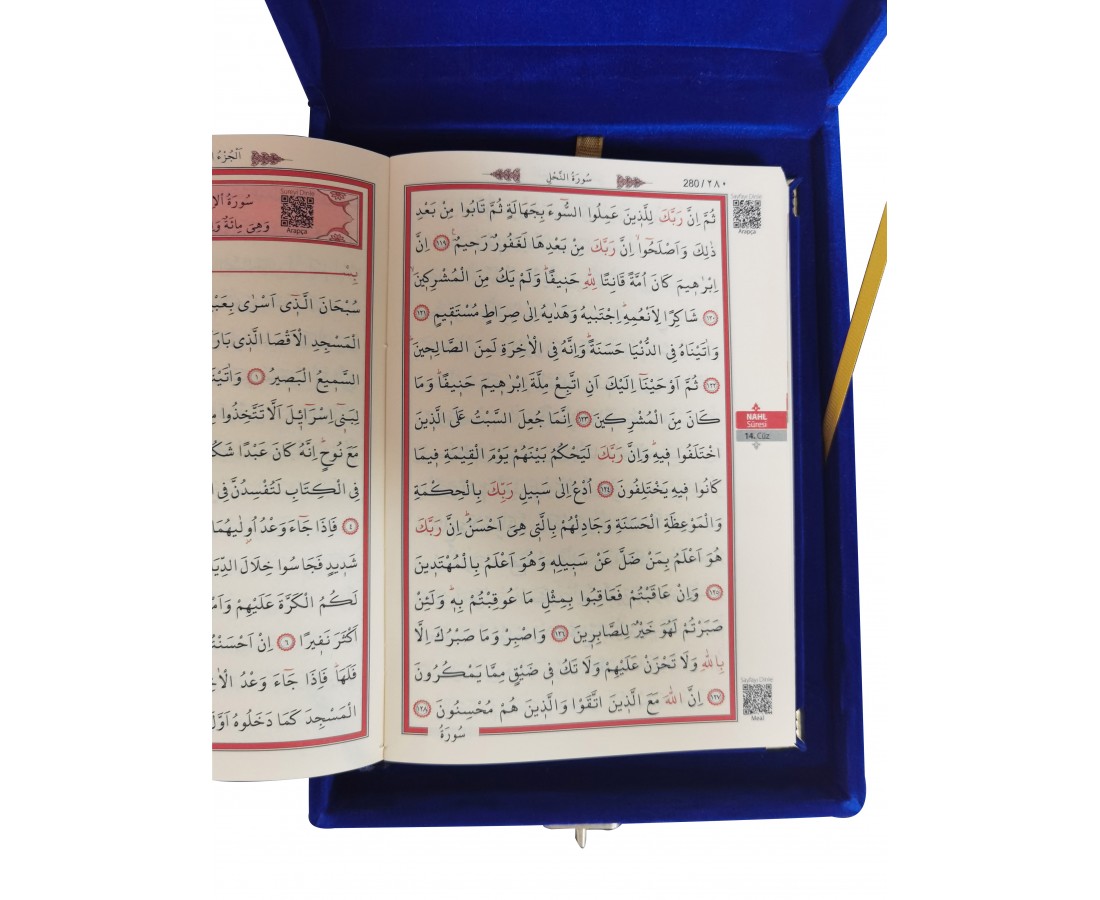 سُورَةُ النَّحْلِ
280 / ٢٨٠
ثُمَّ اِنَّ رَبَّكَ لِلَّذ۪ينَ عَمِلُوا السُّٓوءَ بِجَهَالَةٍ ثُمَّ تَابُوا مِنْ بَعْدِ
ذٰلِكَ وَاَصْلَحُواۙ اِنَّ رَبَّكَ مِنْ بَعْدِهَا لَغَفُورٌ رَح۪يمٌ۟ ﴿١١٩﴾ اِنَّ
اِبْرٰه۪يمَ كَانَ اُمَّةً قَانِتًا لِلّٰهِ حَن۪يفًاۜ وَلَمْ يَكُ مِنَ الْمُشْرِك۪ينَۙ
﴿١٢٠﴾ شَاكِرًا لِاَنْعُمِهِۜ اِجْتَبٰيهُ وَهَدٰيهُ اِلٰى صِرَاطٍ مُسْتَق۪يمٍ ﴿١٢١﴾
وَاٰتَيْنَاهُ فِي الدُّنْيَا حَسَنَةًۜ وَاِنَّهُ فِي الْاٰخِرَةِ لَمِنَ الصَّالِح۪ينَۜ
﴿١٢٢﴾ ثُمَّ اَوْحَيْنَٓا اِلَيْكَ اَنِ اتَّبِعْ مِلَّةَ اِبْرٰه۪يمَ حَن۪يفًاۜ وَمَا
كَانَ مِنَ الْمُشْرِك۪ينَ ﴿١٢٣﴾ اِنَّمَا جُعِلَ السَّبْتُ عَلَى الَّذ۪ينَ
اخْتَلَفُوا ف۪يهِۜ وَاِنَّ رَبَّكَ لَيَحْكُمُ بَيْنَهُمْ يَوْمَ الْقِيٰمَةِ ف۪يمَا
كَانُوا ف۪يهِ يَخْتَلِفُونَ ﴿١٢٤﴾ اُدْعُ اِلٰى سَب۪يلِ رَبِّكَ بِالْحِكْمَةِ
وَالْمَوْعِظَةِ الْحَسَنَةِ وَجَادِلْهُمْ بِالَّت۪ي هِيَ اَحْسَنُۜ اِنَّ رَبَّكَ
هُوَ اَعْلَمُ بِمَنْ ضَلَّ عَنْ سَب۪يلِه۪ وَهُوَ اَعْلَمُ بِالْمُهْتَد۪ينَ
﴿١٢٥﴾ وَاِنْ عَاقَبْتُمْ فَعَاقِبُوا بِمِثْلِ مَا عُوقِبْتُمْ بِه۪ۜ وَلَئِنْ
صَبَرْتُمْ لَهُوَ خَيْرٌ لِلصَّابِر۪ينَ ﴿١٢٦﴾ وَاصْبِرْ وَمَا صَبْرُكَ اِلَّا
بِاللّٰهِ وَلَا تَحْزَنْ عَلَيْهِمْ وَلَا تَكُ ف۪ي ضَيْقٍ مِمَّا يَمْكُرُونَ
﴿١٢٧﴾ اِنَّ اللّٰهَ مَعَ الَّذ۪ينَ اتَّقَوْا وَالَّذ۪ينَ هُمْ مُحْسِنُونَ ﴿١٢٨﴾
سُورَةُ
Sayfayı Dinle
Arapça
NAHL
Sûresi
14. Cüz
Sayfayı Dinle
Meal
اَلْجُزْءُ
Sureyi Dinle
Arapça
سُورَةُ
وَهِيَ مِائَةٌ
سُبْحَانَ الَّذ۪ٓي اَسْرٰى
الْمَسْجِدِ الْاَقْصَا الَّذ۪ي
السَّم۪يعُ الْبَص۪يرُ ﴿١﴾
لِبَن۪ٓي اِسْرَٓائ۪لَ اَلَّا تَتَّخِذُوا
مَعَ نُوحٍۜ اِنَّهُ كَانَ عَبْدًا
فِي الْكِتَابِ لَتُفْسِدُنَّ فِي
﴿٤﴾ فَاِذَا جَٓاءَ وَعْدُ اُو۫لٰيهُمَا
شَد۪يدٍ فَجَاسُوا خِلَالَ
لَكُمُ الْكَرَّةَ عَلَيْهِمْ
اَكْثَرَ نَف۪يرًا ﴿٦﴾ اِنْ
فَلَهَاۜ فَاِذَا جَٓاءَ وَعْدُ
الْمَسْجِدَ كَمَا دَخَلُوهُ